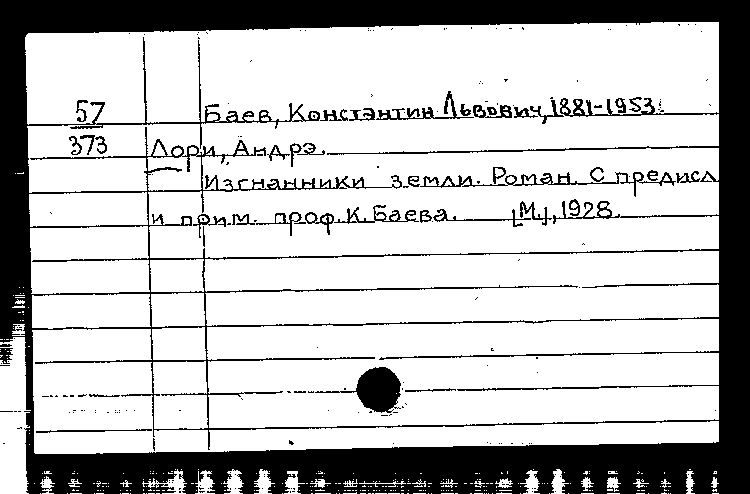 57 Баев, Константин Львович, 1881-1953.
373 Лори, Андрэ.
Изгнанники земли. Роман. С предисл
и прим. проф. К. Баева. [М.], 1928.